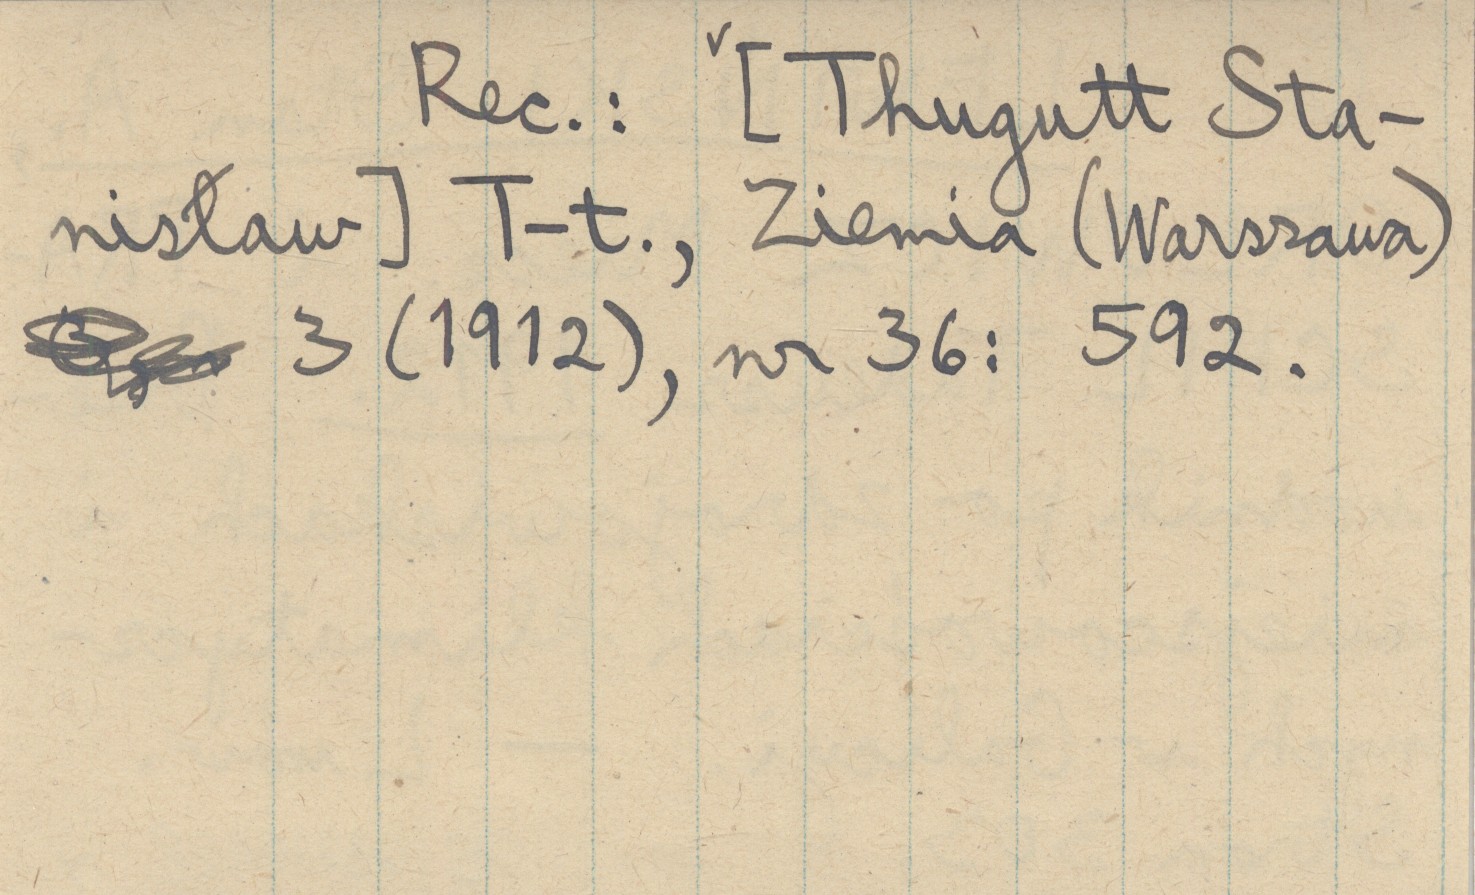 Rec.: ✓[Thugutt Sta-
nisław] T-t., Ziemia (Warszawa)
3 (1912), nr 36: 592.